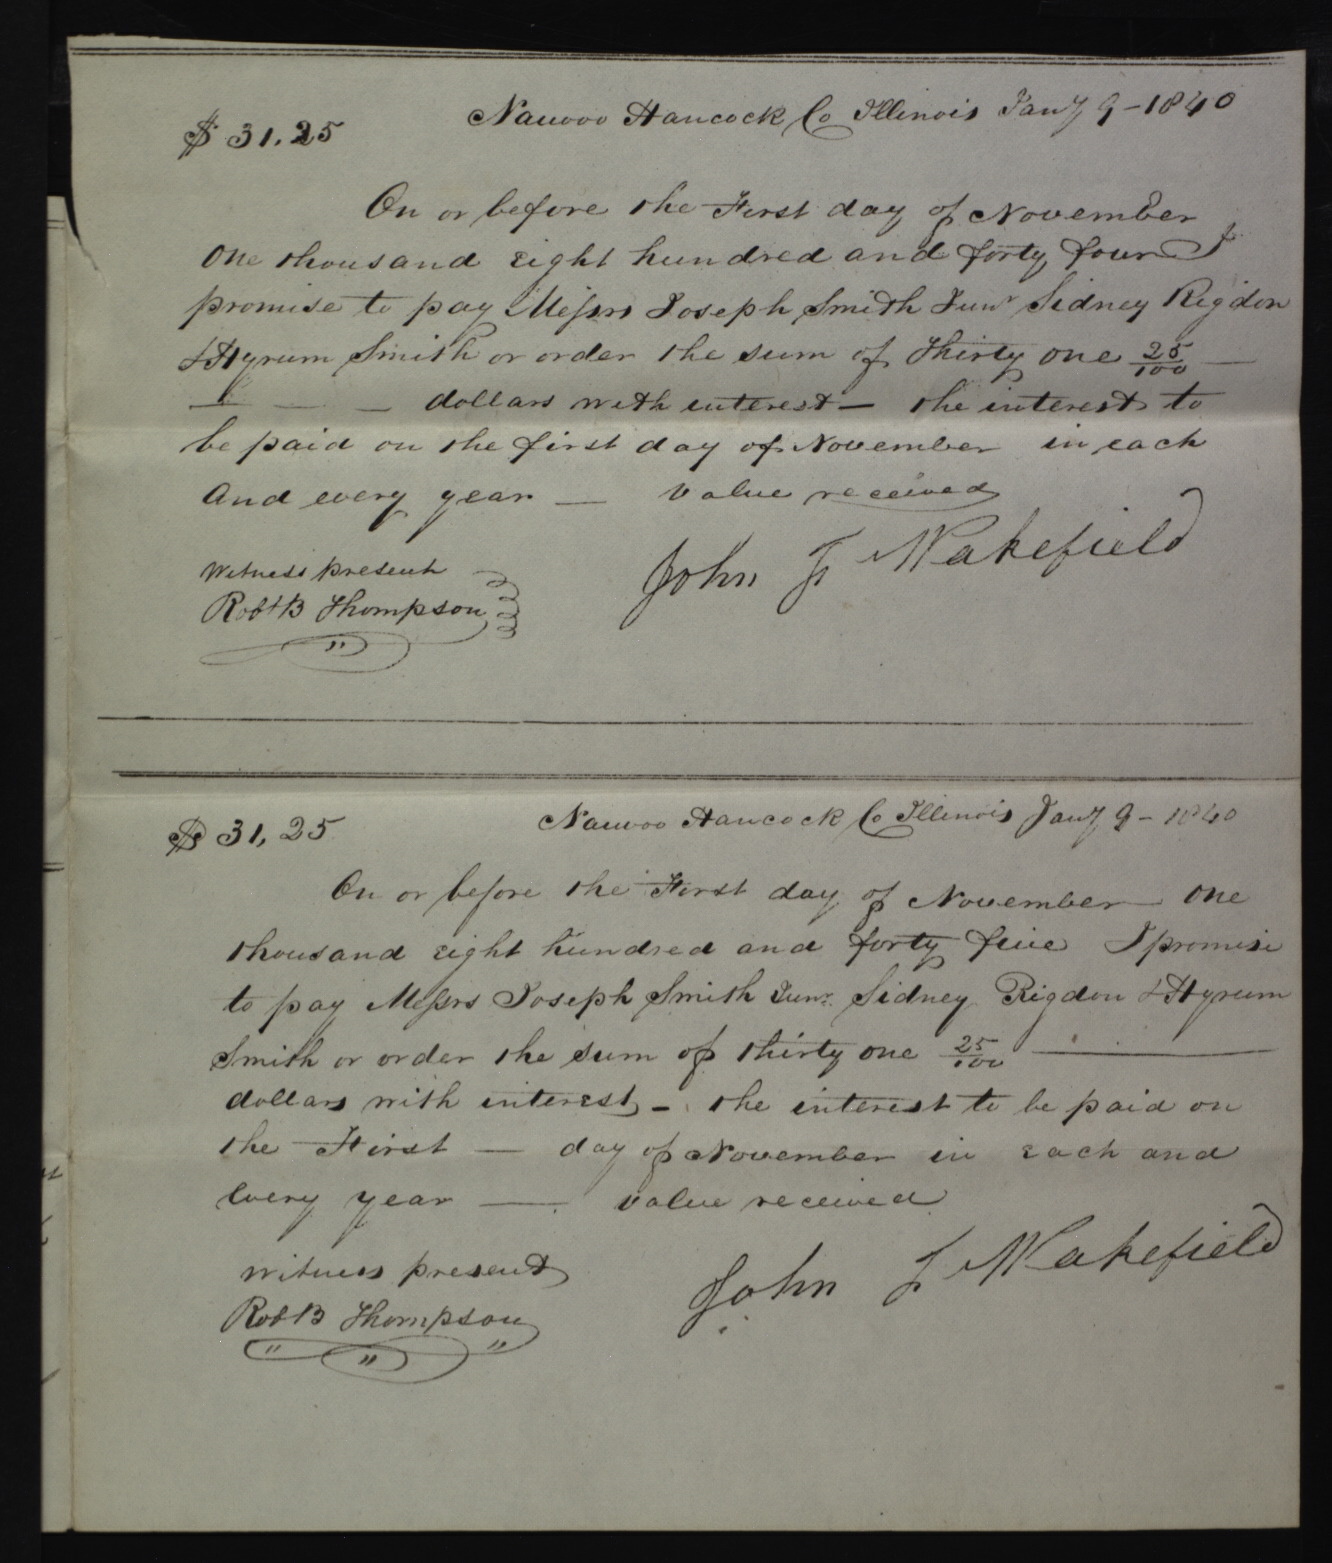 $31.25
Nauvoo Hancock Co Illinois Jany 9-1840
On or before the First day of November
One thousand eight hundred and forty four I
promise to pay Messrs Joseph Smith Junr Sidney Rigdon
& Hyrum Smith or order the sum of Thirty one 25/100 —
— — — dollars with interest — the interest to
be paid on the first day of November in each
And every year — Value received
Witness present
John F Wakefield
Robt B Thompson
"
$31,25
Nauvoo Hancock Co Illinois Jany 9-1840
On or before the First day of November One
thousand eight hundred and forty five I promise
to pay Messrs Joseph Smith Junr. Sidney Rigdon & Hyrum
Smith or order the sum of thirty one 25/100 —
dollars with interest — the interest to be paid on
the First — day of November in each and
every year — value received
witness present
John F Wakefield
Robt B Thompson
" " "